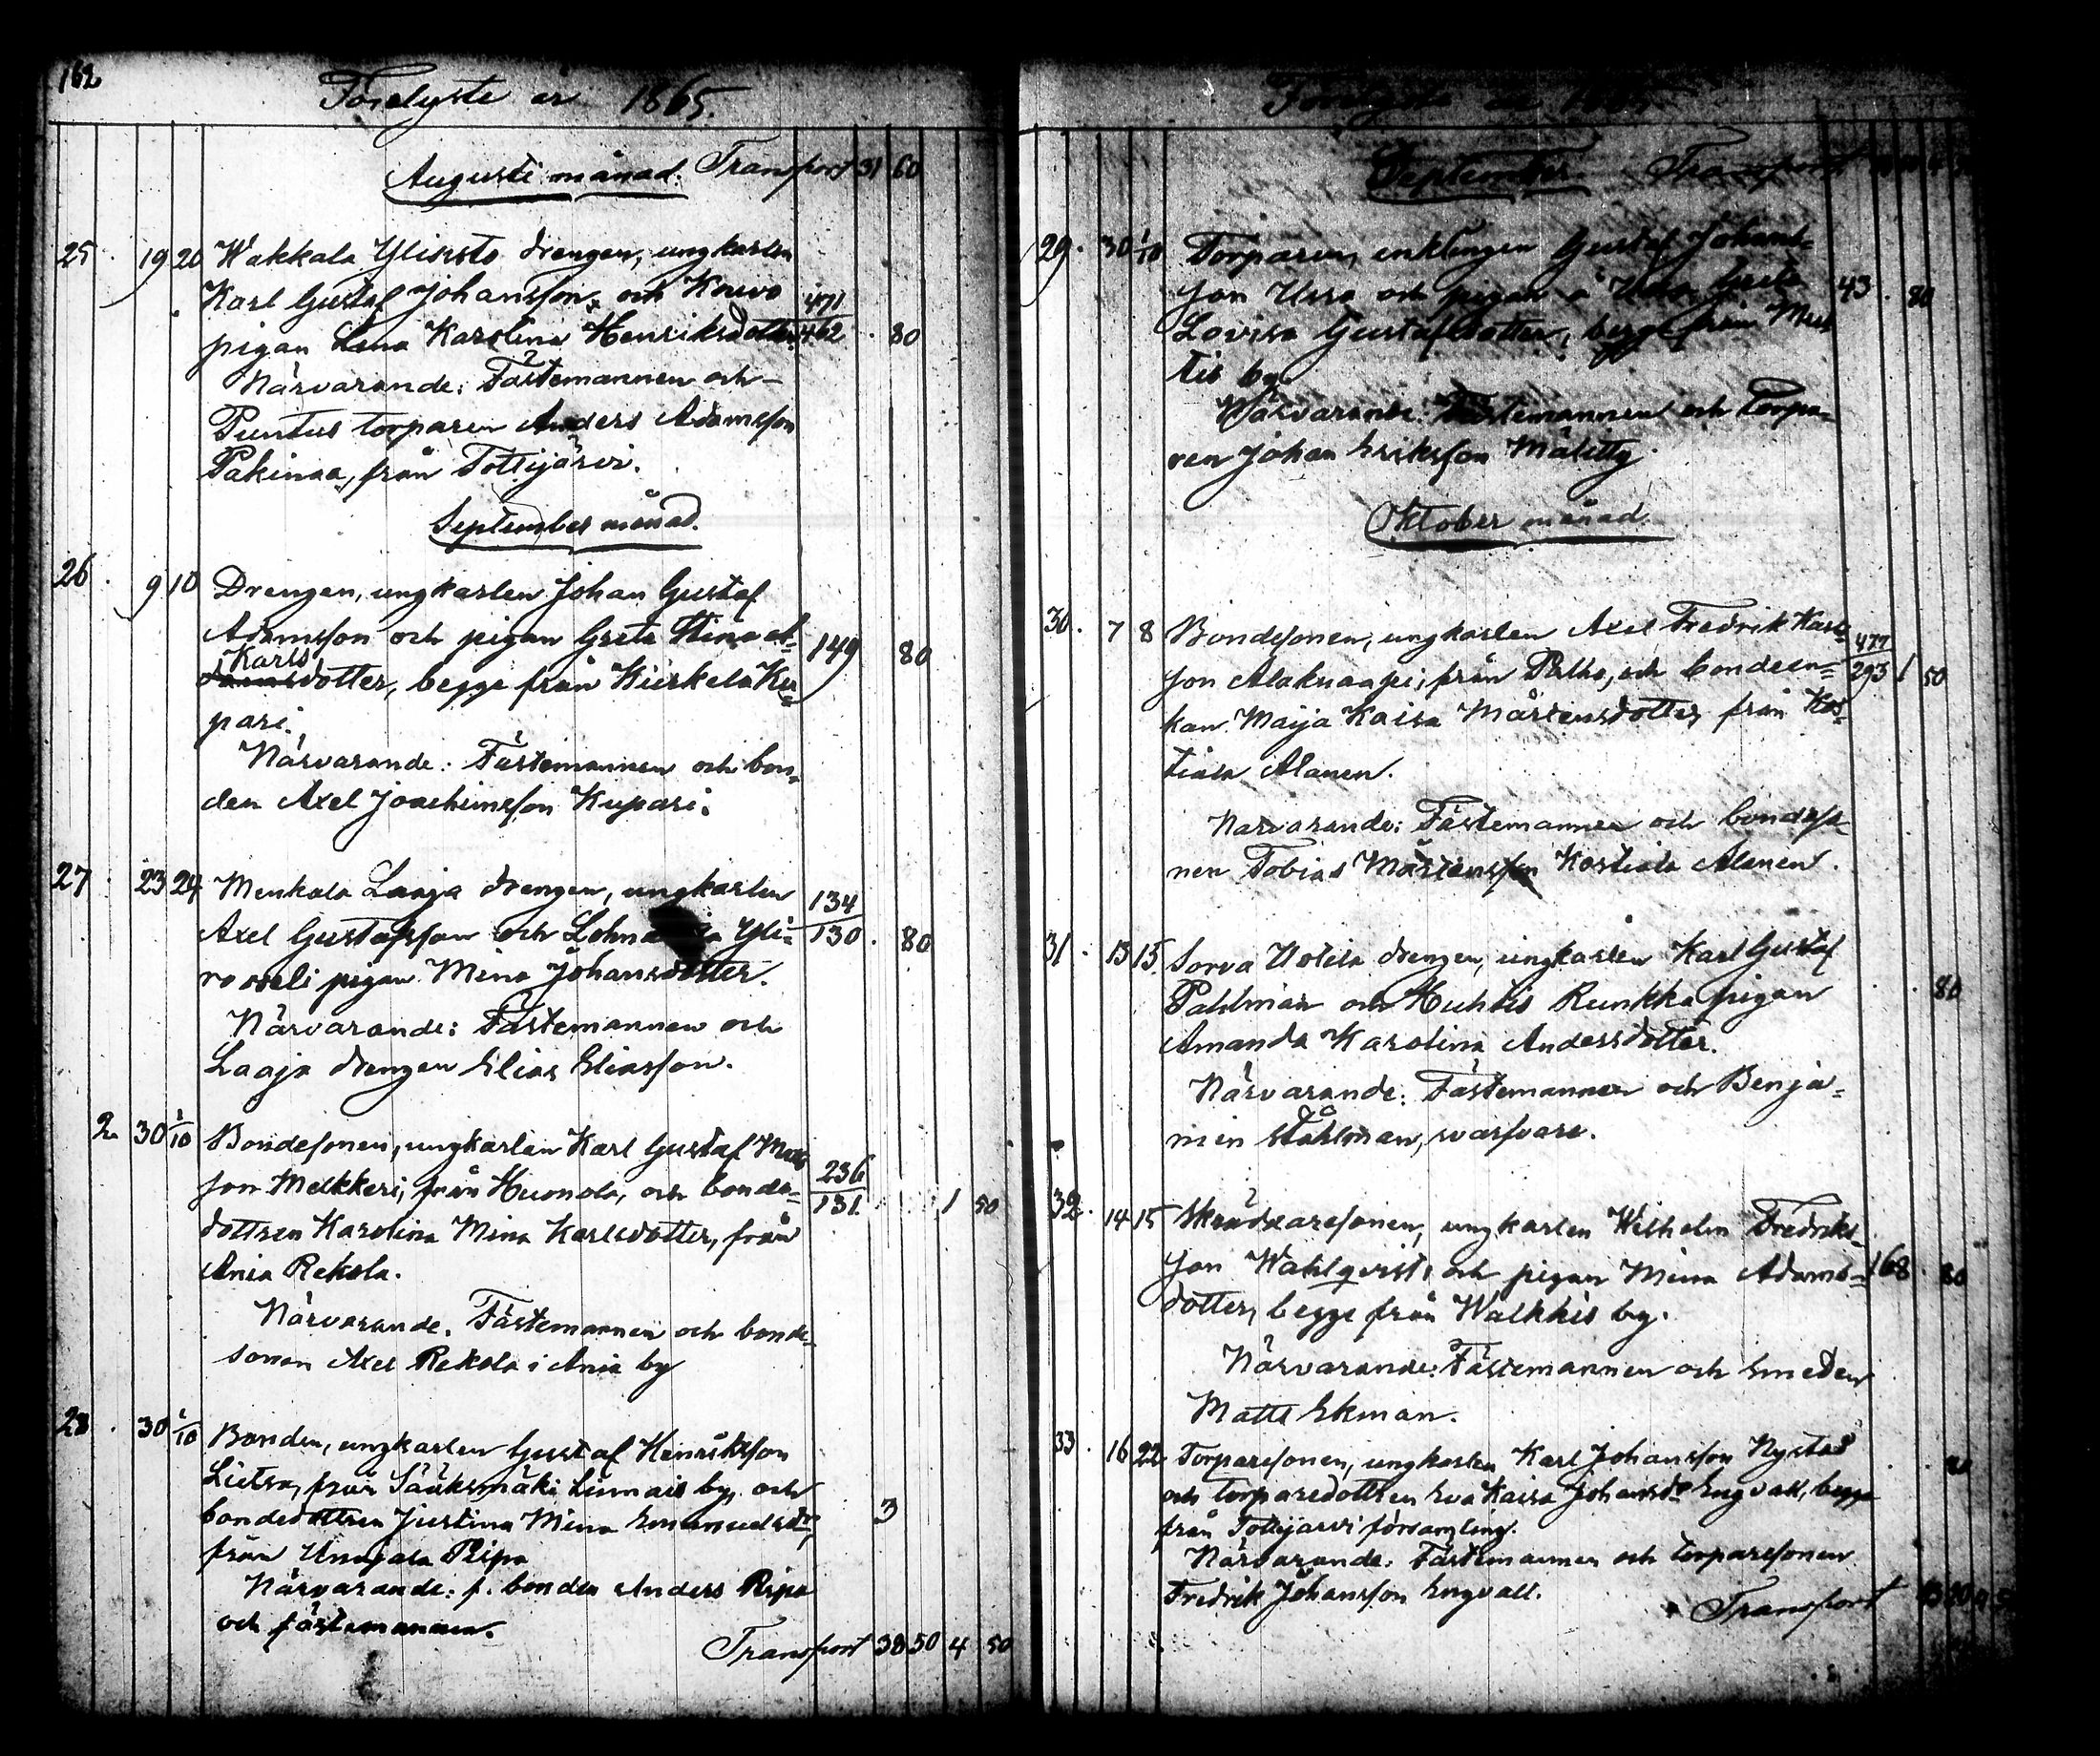 162
Förelyste år 1865.
Augusti månad. Transport 31 60
25. 19 20 Wakkala Ylisisto drengen, ungkarlen
Karl Gustaf Johansson, och Kouvo 471
pigan Lena Karolina Henriksdotter. 462 . 80
Närvarande: Fästemannen och
Puntus torparen Anders Adamsson
Pakinaa, från Tottijärvi.
September månad.
26. 9 10 Drengen, ungkarlen Johan Gustaf
Adamsson och pigan Greta Stina A= 149 80
Karls
damsdotter, begge från Kirkela Ku=
pari.
Närvarande: Fästemannen och bon=
den Axel Joachimsson Kupari.
27. 23 24 Menkala Laaja drengen, ungkarlen 134
Axel Gustafsson och Yli= 130 . 80
rooseli pigan Mina Johansdotter.
Närvarande: Fästemannen och
Laaja drengen Elias Eliasson.
2. 30 1/10 Bondesonen, ungkarlen Karl Gustaf Matts
son Melkkeri, från Huonola, och bonde= 236
131 1 50
dottren Karolina Mina Karlsdotter, från
Ania Rekola.
Närvarande. Fästemannen och bonde=
sonen Axel Rekola i Ania by
28. 30 1/10 Bonden, ungkarlen Gustaf Henriksson
Lietsa, från Sääksmäki by, och
bondedottren Justina Mina Emanuelsdr, 3
från Unajala Ripa
Närvarande: f. bonden Anders Ripa
och fästemannen.
Transport 38 50 4 50
Förelyste år 1865
September. Transport
29. 30 1/10 Torparen, enklingen Gustaf Johans=
son Ussa och pigan å Ussa Greta 43 . 80
Lovisa Gustafsdotter, begge från
tis by.
Närvarande: Fästemannen och torpa=
ren Johan Eriksson Mälitty.
Oktober månad.
30. 7 8 Bondesonen, ungkarlen Axel Fredrik Karls= 477
son Alaknaapi, från Palho, och bondeen= 293 1 50
kan Maija Kaisa Mårtensdotter, från Kos=
tiala Alanen.
Närvarande: Fästemannen och bondeso=
nen Tobias Mårtensson Kostiala Alanen.
31. 13 15. Sorva Uotila drengen, ungkarlen Karl Gustaf
Pahlman och Huhtis Runkka pigan . . 80
Amanda Karolina Andersdotter.
Närvarande: Fästemannen och Benja=
min Ståhlman, svarfvare.
32. 14 15 Skräddaresonen, ungkarlen Wilhelm Fredriks=
son Wahlqvist, och pigan Mina Adams= 168. 80
dotter, begge från Walkkis by.
Närvarande: Fästemannen och smeden
Matts Ekman.
33. 16 22 Torparesonen, ungkarlen Karl Johansson Nystad
och torparedottren Eva Kaisa Johansdr Engvall, begge
från Tottijärvi församling.
Närvarande: Fästemannen och torparesonen
Fredrik Johansson Engvall.
Transport